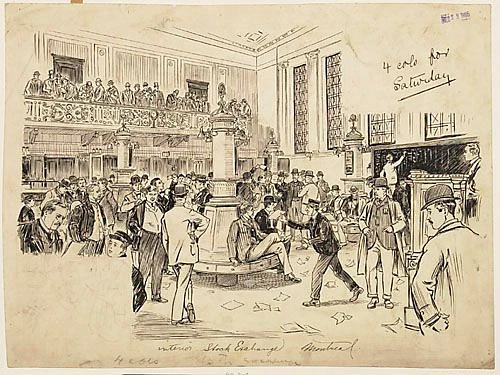 4 cols for
Saturday
interior Stock Exchange Montreal
4 cols